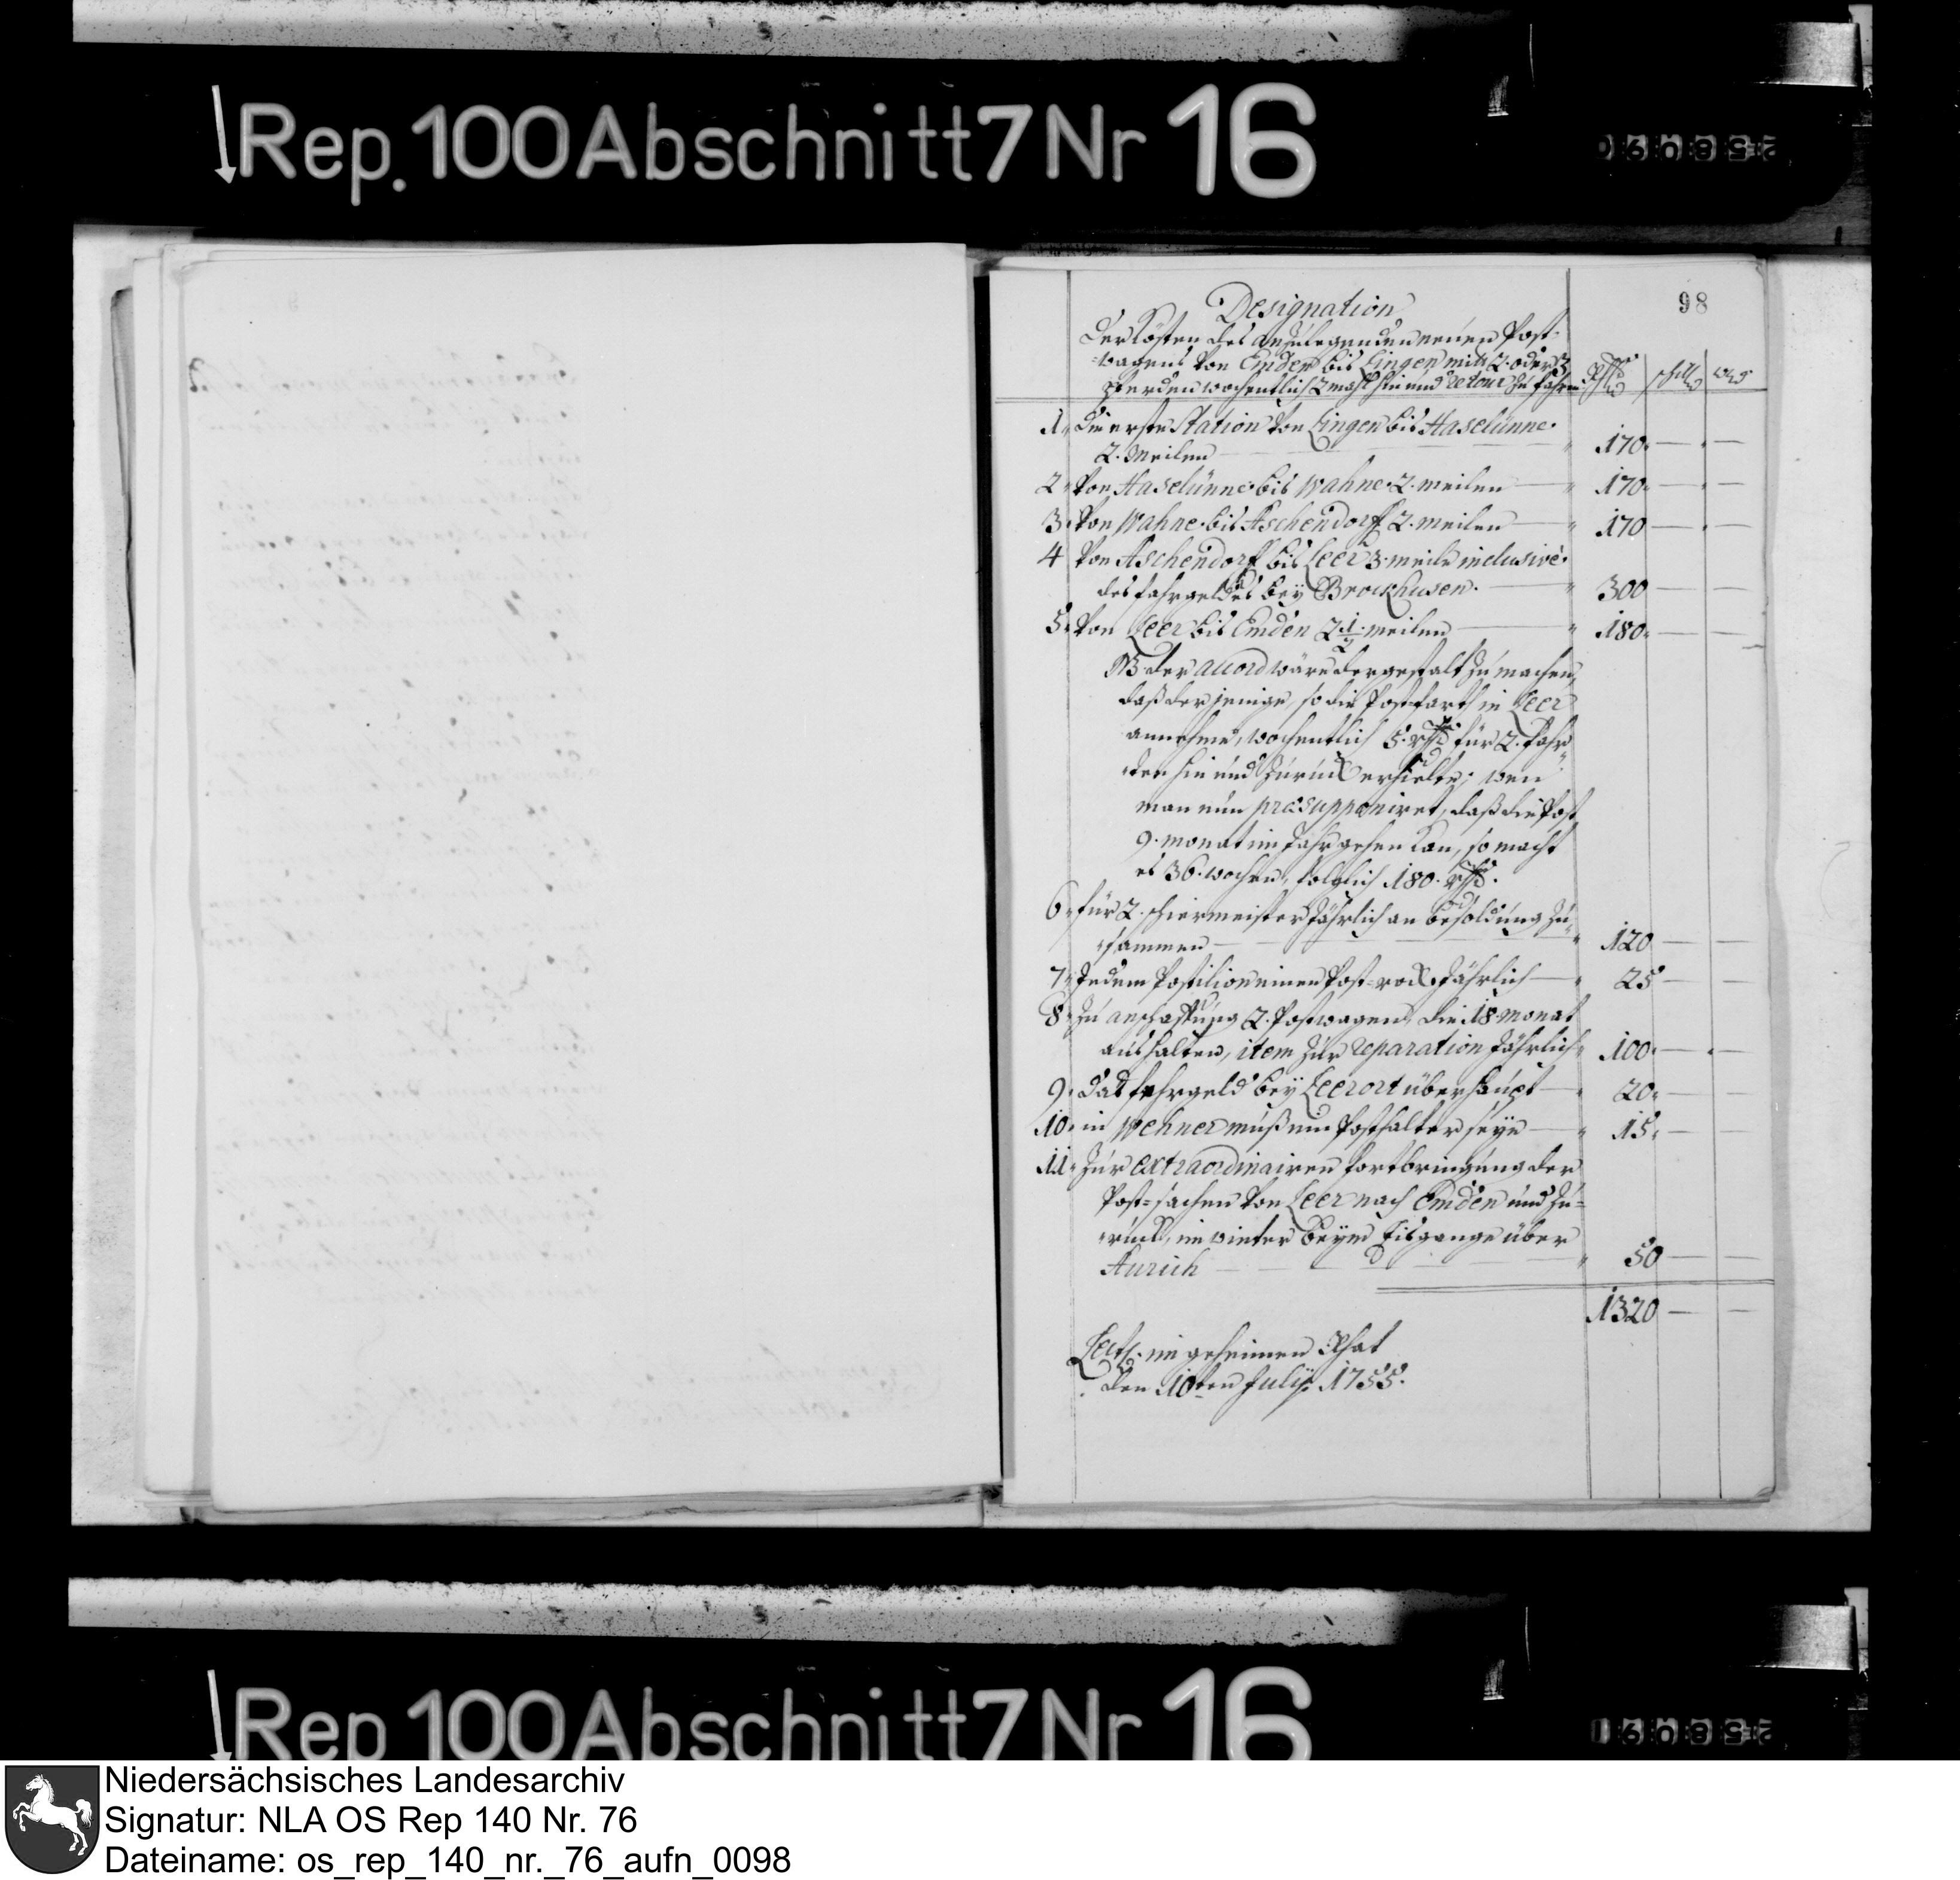 Rep. 100 Abschnitt 7 Nr 16
98
Designation
Der Kosten des anzulegenden neuen Post-
wagens von Emden bis Lingen mit 2. oder 3
Pferden wochentlich 2 mahl hin und retour zu fahren
1. Die erste Station von Lingen bis Haselünne.
2. Meilen — 170. — —
2. von Haselünne bis Wahne 2. meilen — 170. — —
3. von Wahne bis Aschendorf 2. meilen — 170 — —
4 von Aschendorf bis Leer 3. meile inclusivè.
des fahrgeldes bey Brockhusen. — 300 — —
5. von Leer bis Emden 2 1/2 meilen — 180. — —
NB der accord wäre dergestalt zu machen,
daß der jenige, so die Postfart in Leer
annehme, wochentlich 5. Rthlr für 2. fahr-
ten hin und zurück erhielte; wen
man nun præsupponiret, daß die Post
9. monat im Jahr gehen kan, so macht
es 36. wochen, folglich 180. Rthlr.
6. für 2. schirmeister Jährlich an besoldung zu-
sammen — 120 — —
7. Jedem Postilion einen Post-rock Jährlich — 25 — —
8. Zu anschaffung 2. Postwagen, die 18. monat
aushalten, item zur reparation Jährlich 100. — —
9. Das fehrgeld bey Leerort überhaupt — 20. — —
10. in Wehner muß ein Posthalter seyn — 15. — —
11. Zur extraordinairen fortbringung der
Post-sachen von Leer nach Emden und zu-
rück, im winter beym Eisgange über
Aurich — 50 — —
1320 — —
Lect. im geheimen Rhat
den 10ten Julij 1755.
Rep 100 Abschnitt 7 Nr 16
Niedersächsisches Landesarchiv
Signatur: NLA OS Rep 140 Nr. 76
Dateiname: os_rep_140_nr._76_aufn_0098